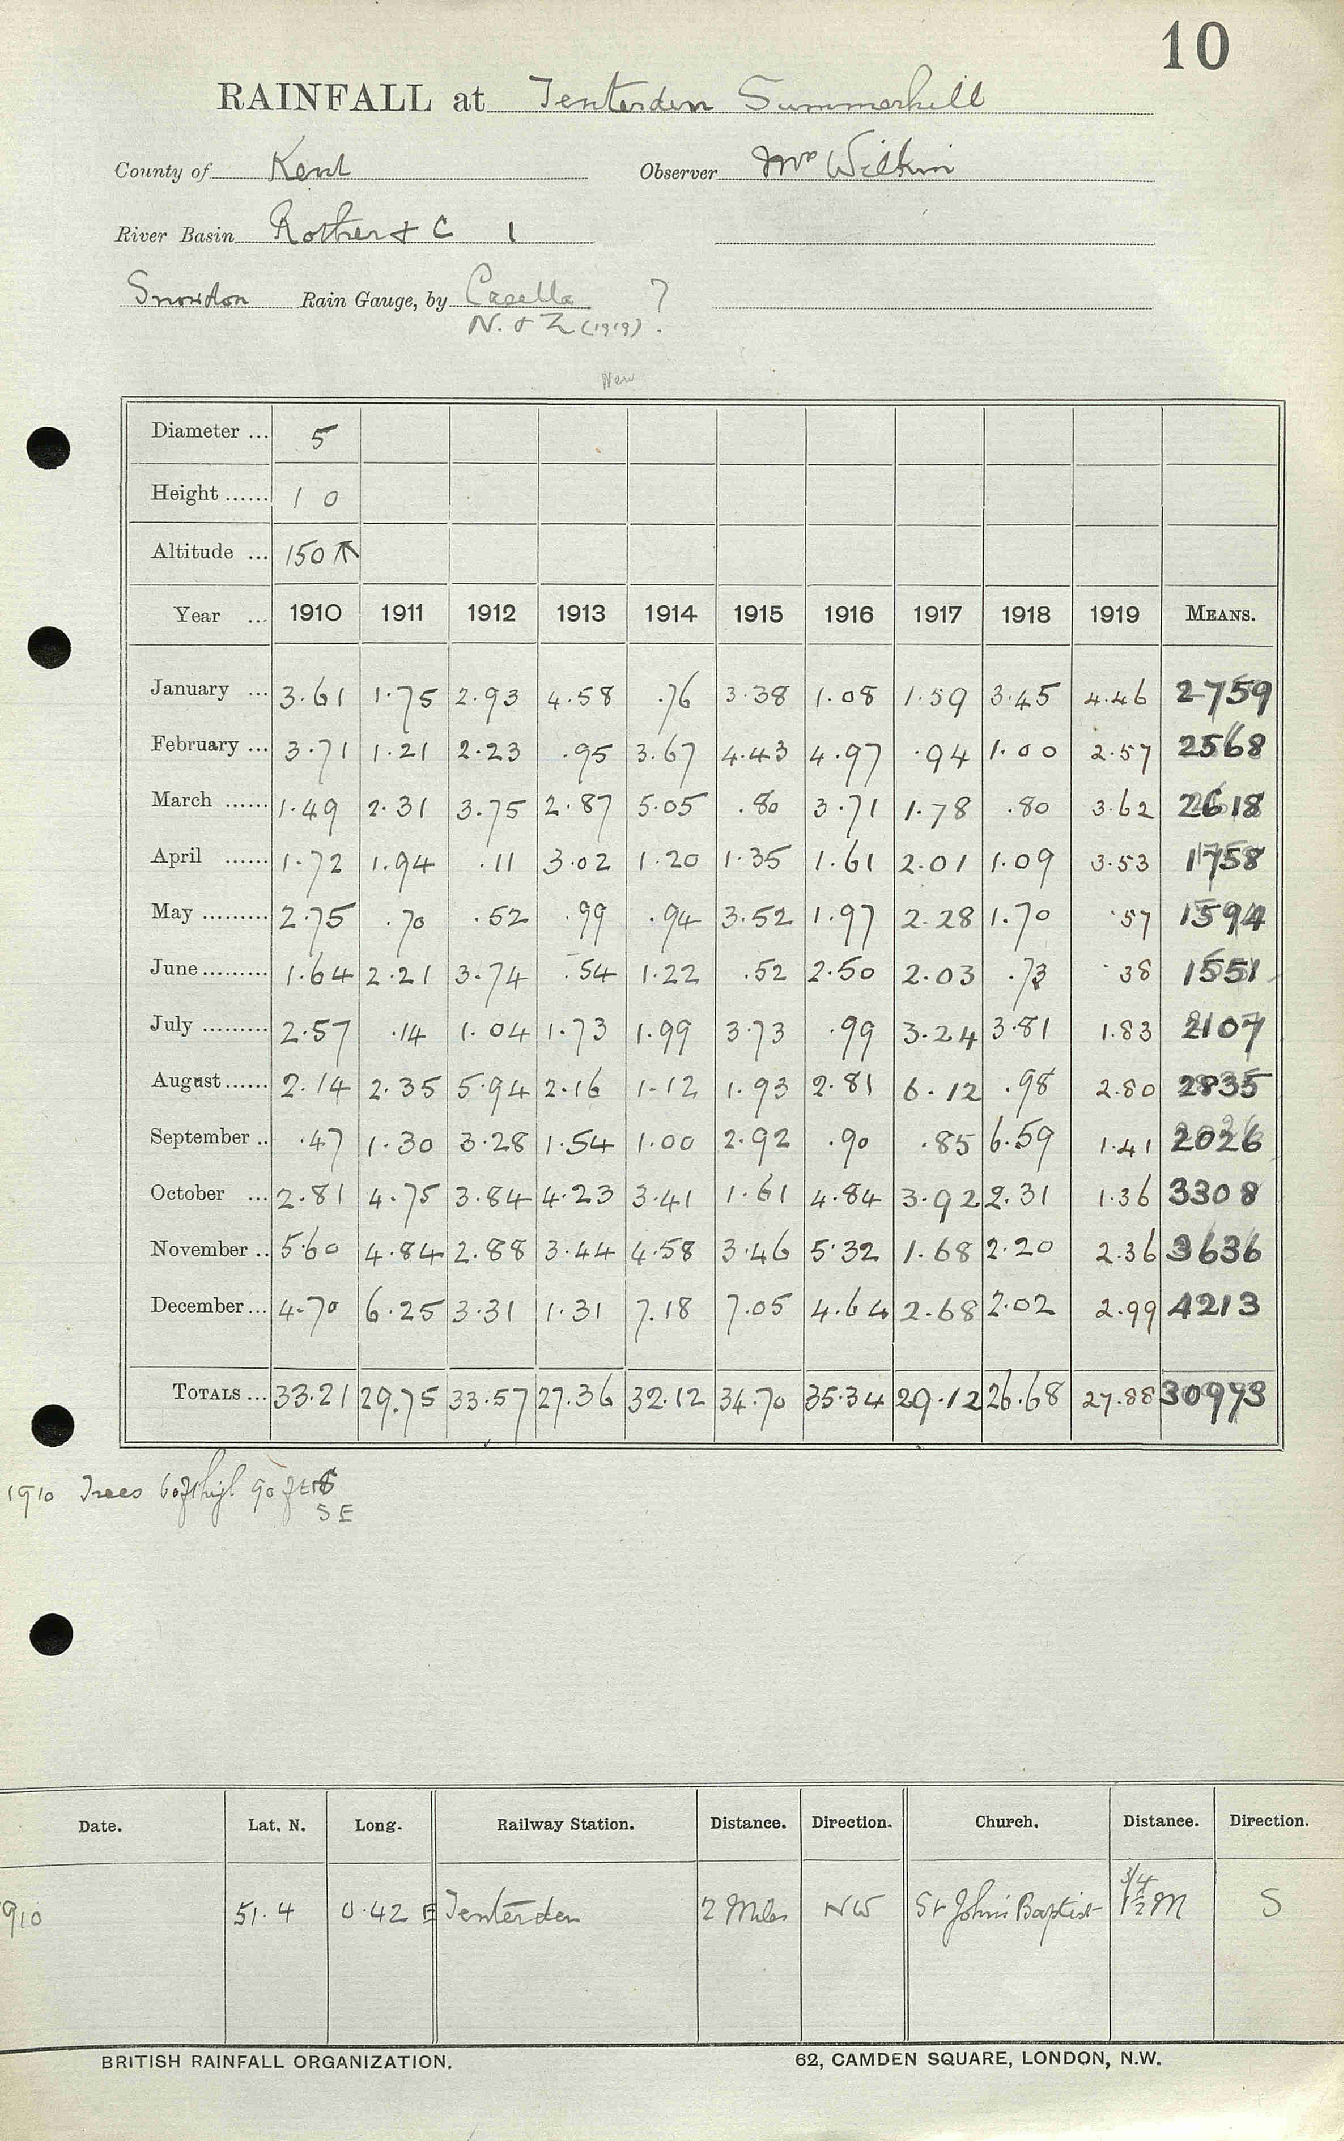 10
RAINFALL at Tenterden Summerhill
County of Kent Observer Mrs Wilkin
River Basin Rother & C 1
Snowdon Rain Gauge, by Casella ?
N. & Z (1919) .
New
Diameter ... 5
Height ...... 1 0
Altitude ... 150
Year ... 1910 1911 1912 1913 1914 1915 1916 1917 1918 1919 MEANS.
January ... 3.61 1.75 2.93 4.58 .76 3.38 1.08 1.59 3.45 4.46 2759
February ... 3.71 1.21 2.23 .95 3.67 4.43 4.97 .94 1.00 2.57 2568
March ...... 1.49 2.31 3.75 2.87 5.05 .80 3.71 1.78 .80 3.62 2618
April ...... 1.72 1.94 .11 3.02 1.20 1.35 1.61 2.01 1.09 3.53 1758
May ......... 2.75 .70 .52 .99 .94 3.52 1.97 2.28 1.70 .57 1594
June ......... 1.64 2.21 3.74 .54 1.22 .52 2.50 2.03 .73 .38 1551
July ......... 2.57 .14 1.04 1.73 1.99 3.73 .99 3.24 3.81 1.83 2107
August ...... 2.14 2.35 5.94 2.16 1.12 1.93 2.81 6.12 .98 2.80 2835
September .. .47 1.30 3.28 1.54 1.00 2.92 .90 .85 6.59 1.41 2026
October ... 2.81 4.75 3.84 4.23 3.41 1.61 4.84 3.92 2.31 1.36 3308
November .. 5.60 4.84 2.88 3.44 4.58 3.46 5.32 1.68 2.20 2.36 3636
December ... 4.70 6.25 3.31 1.31 7.18 7.05 4.64 2.68 2.02 2.99 4213
TOTALS ... 33.21 29.75 33.57 27.36 32.12 34.70 35.34 29.12 26.68 27.88 30973
1910 Trees 60ft high 90 ft
S E
Date. Lat. N. Long. Railway Station. Distance. Direction. Church. Distance. Direction.
910 51.4 0.42 E Tenterden 2 Miles NW St John Baptist 3/4 1½ M S
BRITISH RAINFALL ORGANIZATION. 62, CAMDEN SQUARE, LONDON, N.W.